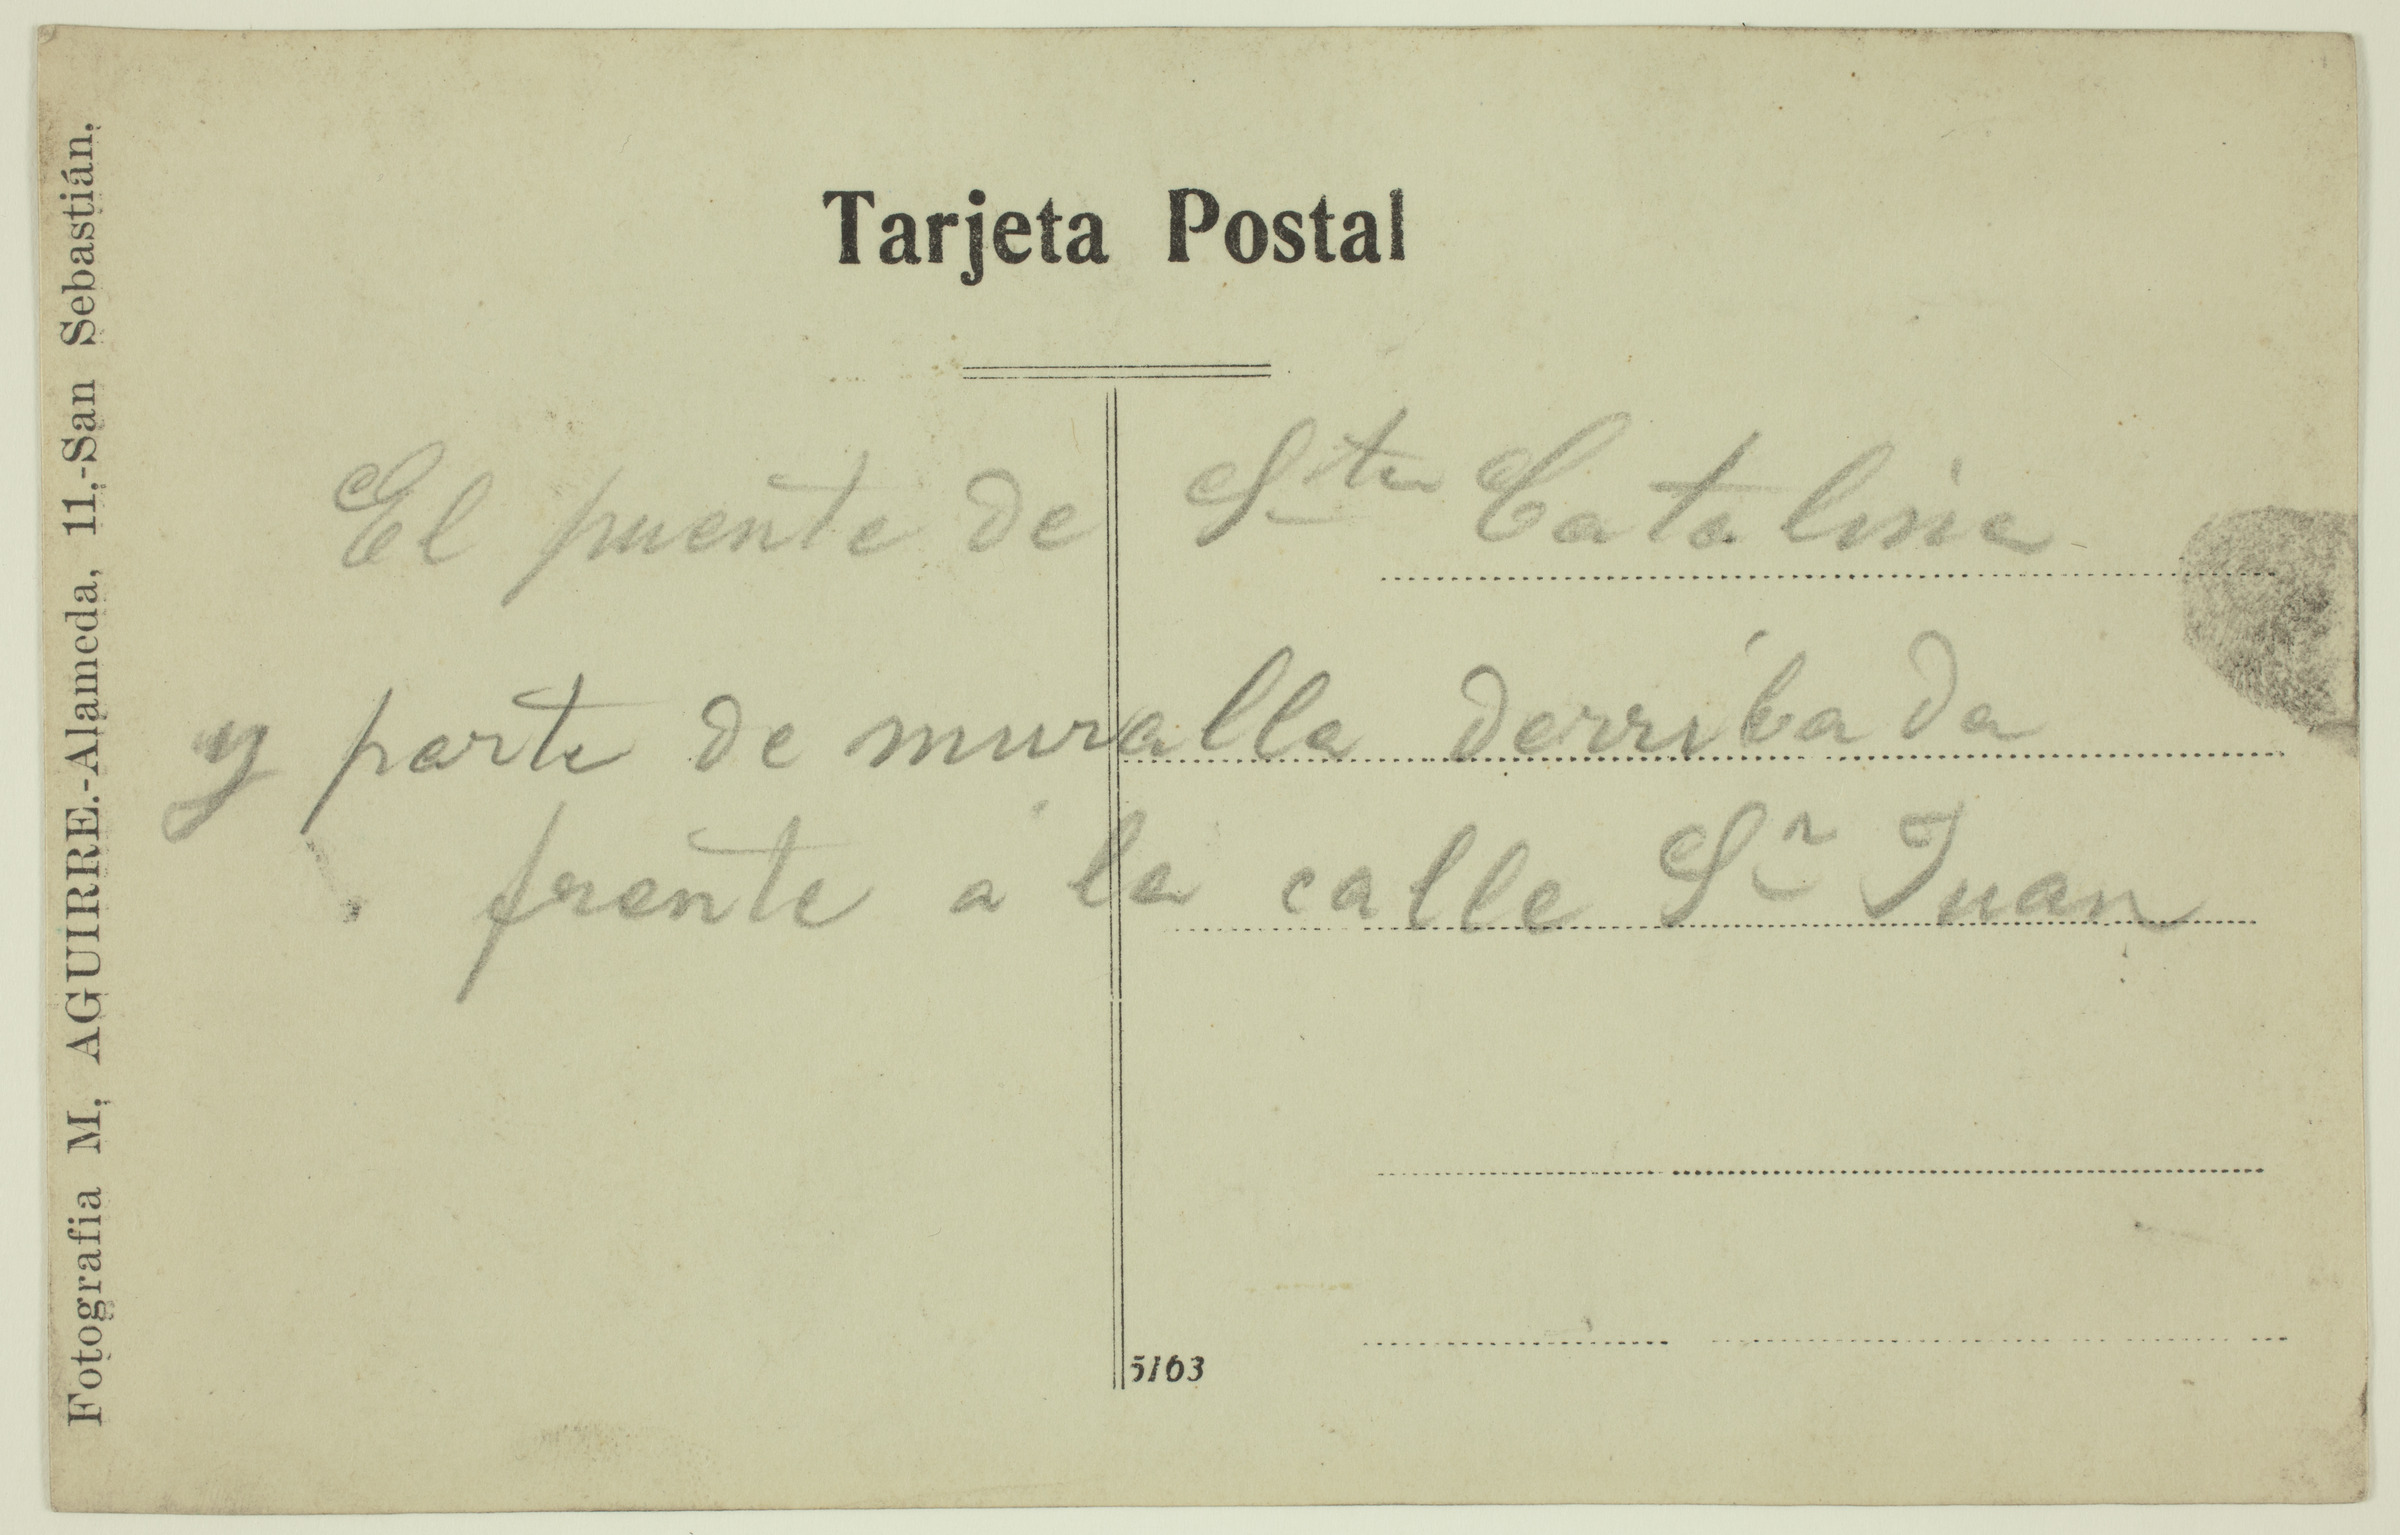 Tarjeta Postal
El puente de Sta Catalina
y parte de muralla derribada
frente a la calle Sn Juan
5163
Fotografia M. AGUIRRE.-Alameda, 11.-San Sebastián.